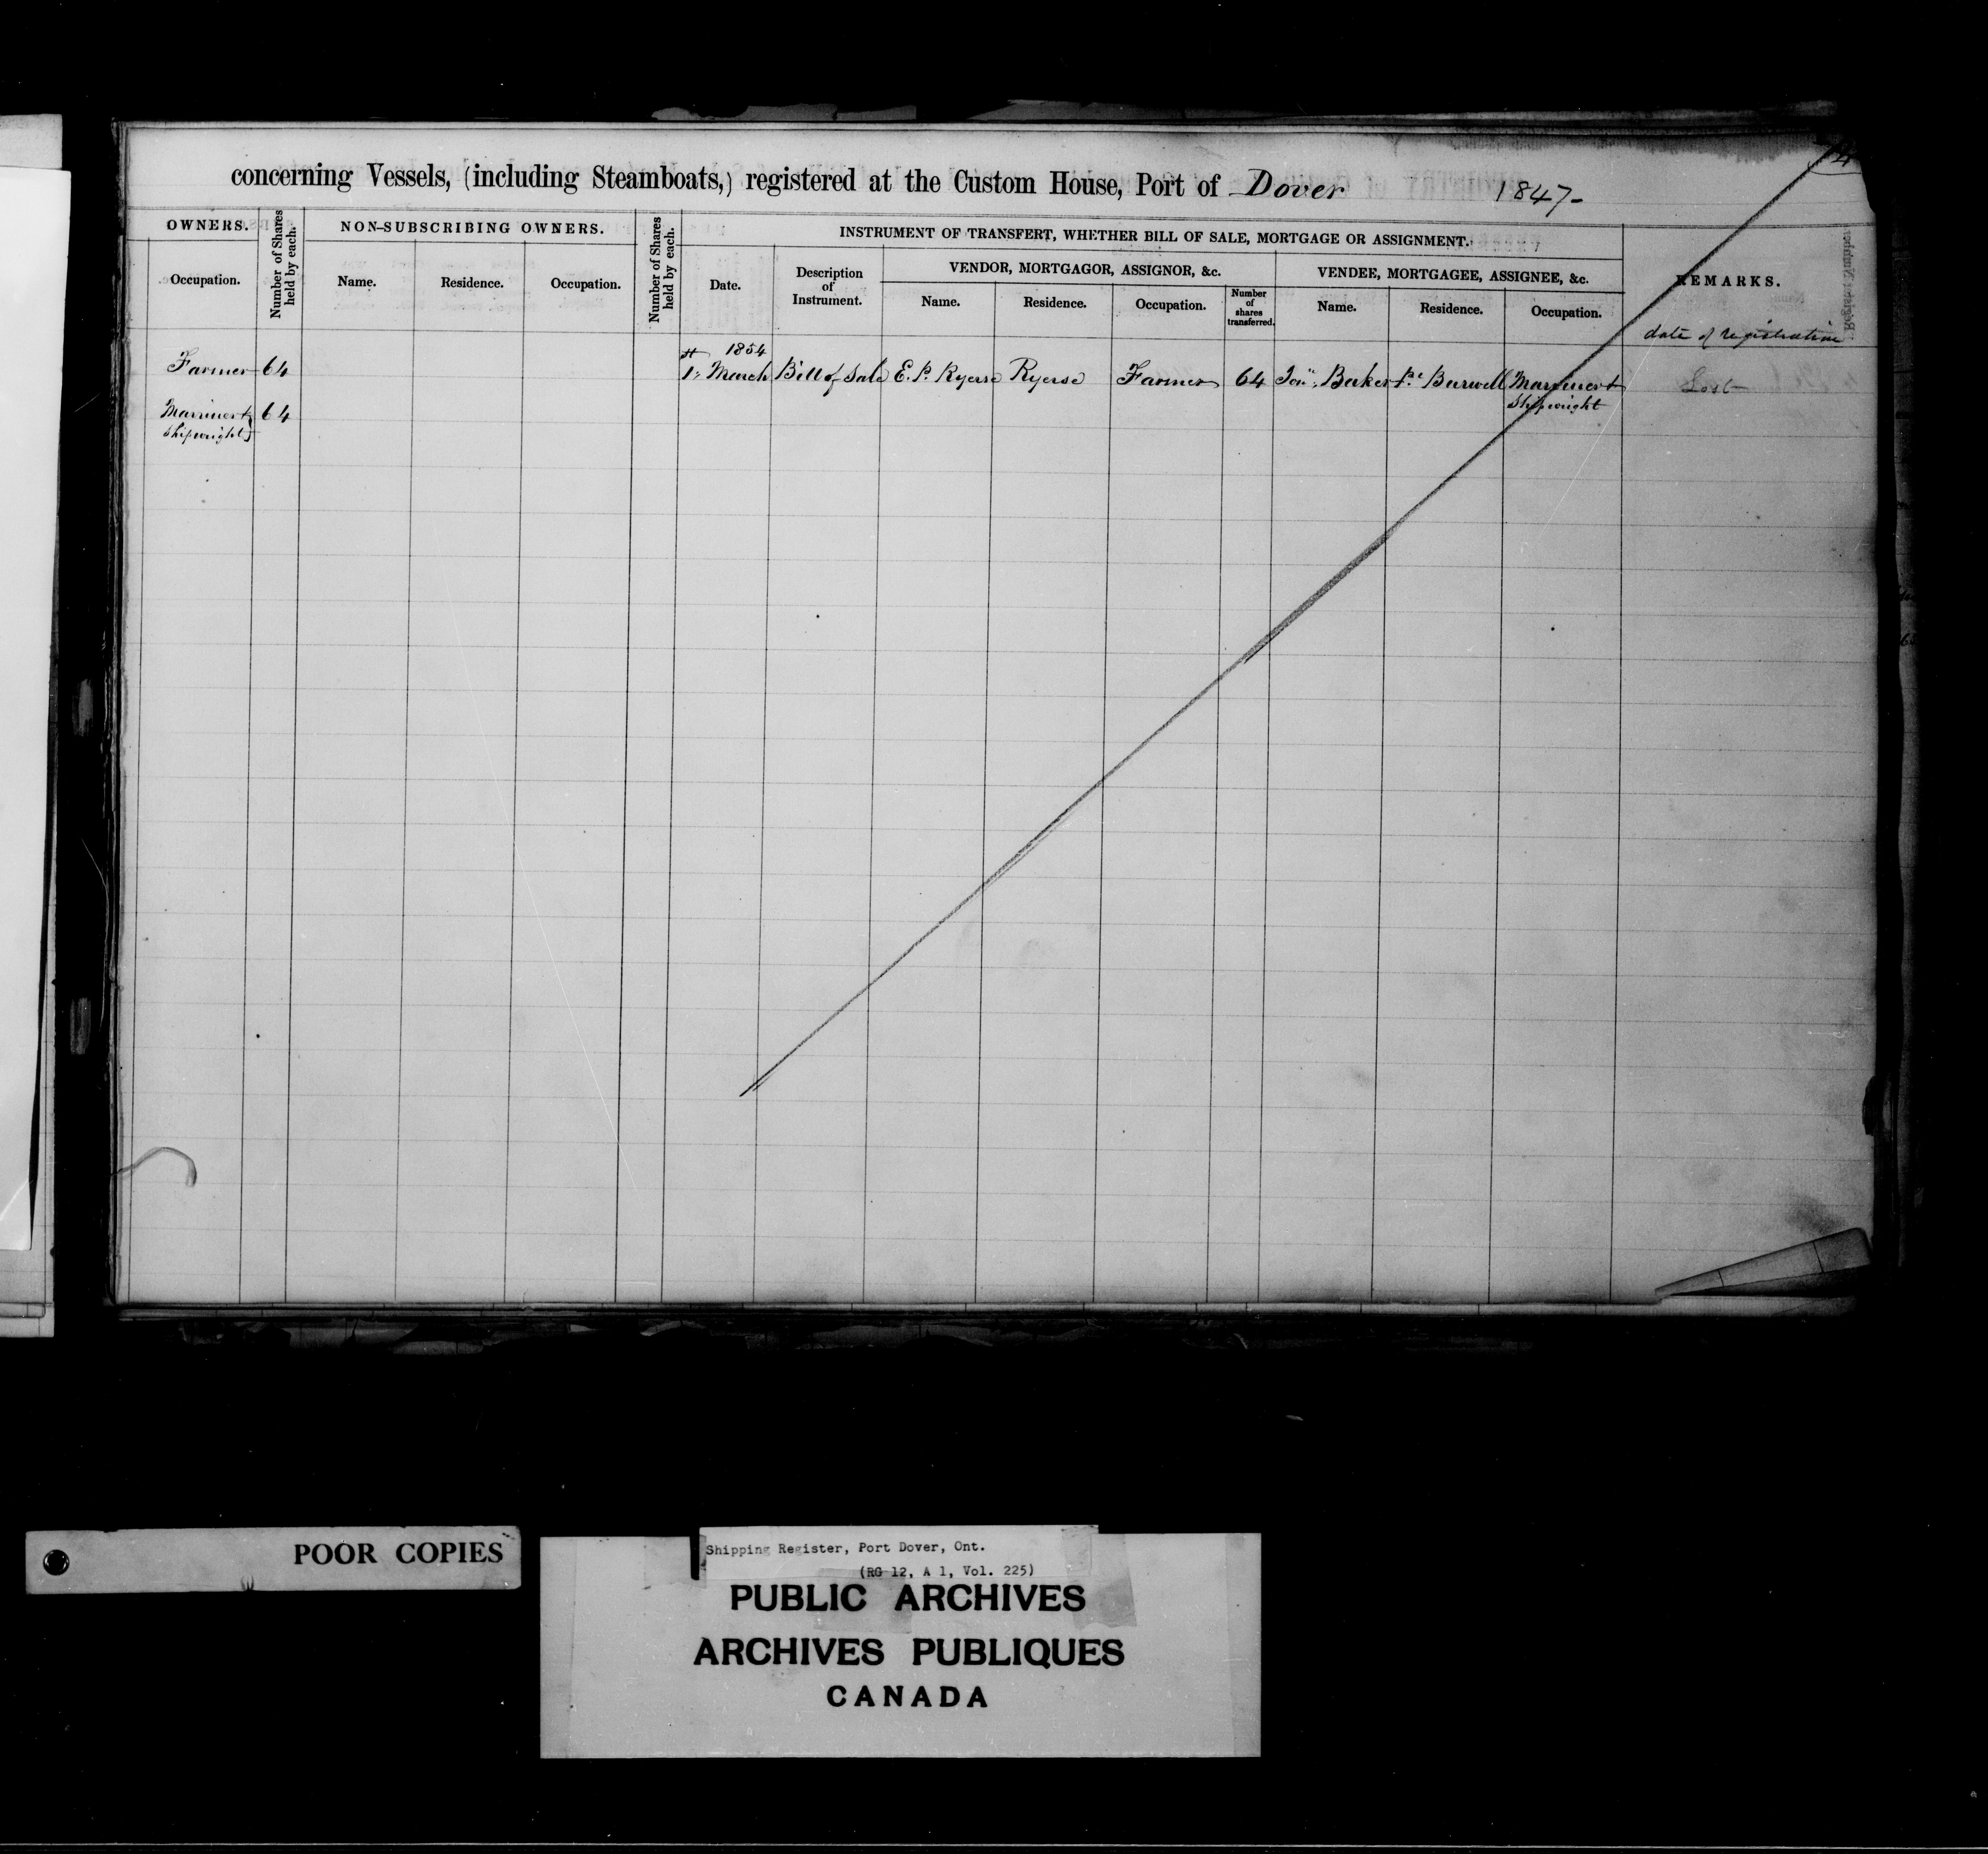 concerning Vessels, (including Steamboats,) registered at the Custom House, Port of Dover 1847-
OWNERS.
Occupation.
Number of Shares
held by each.
NON-SUBSCRIBING OWNERS.
Name.
Residence.
Occupation.
Number of Shares
held by each.
INSTRUMENT OF TRANSFERT, WHETHER BILL OF SALE, MORTGAGE OR ASSIGNMENT.
Date.
Description
of
Instrument.
VENDOR, MORTGAGOR, ASSIGNOR, &c.
Name.
Residence.
Occupation.
Number
of
shares
transferred.
VENDEE, MORTGAGEE, ASSIGNEE, &c.
Name.
Residence.
Occupation.
REMARKS.
date of registration
1854
Farmer 64 1st March Bill of Sale E. P. Ryerse Ryerse Farmer 64 Baker Pt Burwell Marriner & Lost
Shipwright
Marriner & 64
Shipwright
POOR COPIES
Shipping Register, Port Dover, Ont.
(RG 12, A 1, Vol. 225)
PUBLIC ARCHIVES
ARCHIVES PUBLIQUES
CANADA